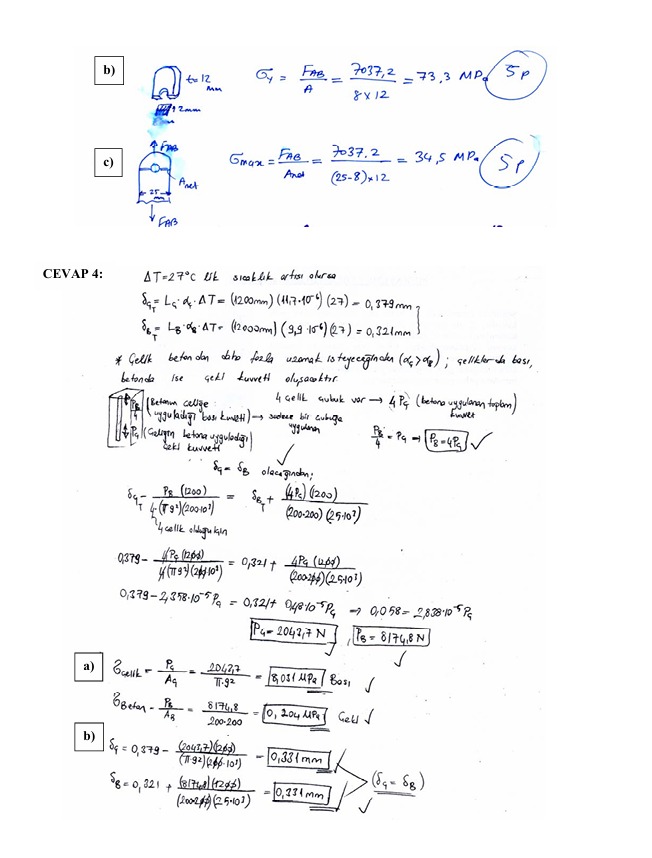 b)
t=12 mm
12mm
σy = FAB/A = 7037,2/(8×12) = 73,3 MPa 5p
c)
FAB
Anet
25 mm
FAB
σmax = FAB/Anet = 7037.2/((25-8)×12) = 34,5 MPa 5p
CEVAP 4:
ΔT=27°C lik sıcaklık artışı olursa
δÇT = LÇ·αÇ·ΔT = (1200mm)(11,7·10⁻⁶)(27) = 0,379mm
δBT = LB·αB·ΔT = (12000mm)(9,9·10⁻⁶)(27) = 0,321mm
* Çelik betondan daha fazla uzamak isteyeceğinden (αÇ>αB); çeliklerde bası,
betonda ise çeki kuvveti oluşacaktır.
4 çelik çubuk var → 4PÇ (betona uygulanan toplam kuvvet)
PB/4 (Betonun çeliğe uyguladığı bası kuvveti) → sadece bir çubuğa uygulanan
PÇ (Çeliğin betona uyguladığı çeki kuvveti)
PB/4 = PÇ ⇒ PB=4PÇ ✓
δÇ = δB olacağından;
δÇT - PB(1200)/(4·(π9²)(200·10³)) = δBT + (4PÇ)(1200)/((200·200)(25·10³))
4 çelik olduğu için
0,379 - 4PÇ(1200)/(4(π9²)(200·10³)) = 0,321 + 4PÇ(1200)/((200·200)(25·10³))
0,379-2,358·10⁻⁵PÇ = 0,321+ 0,48·10⁻⁵PÇ ⇒ 0,058=2,838·10⁻⁵PÇ
PÇ=2043,7 N , PB=8174,8N ✓
a)
σÇelik = PÇ/AÇ = 2043,7/(π·9²) = 8,031 MPa Bası ✓
σBeton = PB/AB = 8174,8/(200·200) = 0,204 MPa Çeki ✓
b)
δÇ = 0,379 - (2043,7)(1200)/((π9²)(200·10³)) = 0,331 mm
δB = 0,321 + (8174,8)(1200)/((200·200)(25·10³)) = 0,331mm
(δÇ = δB) ✓